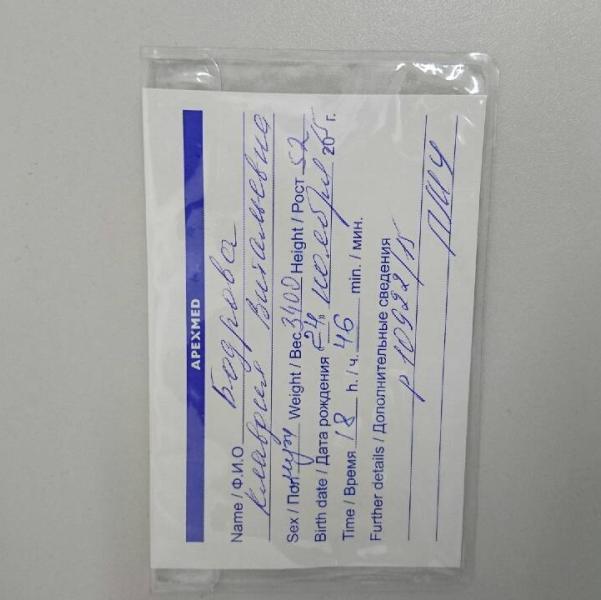 APEXMED
Name / Ф.И.О Бодрова
Клавдия Витальевна
Sex / Пол муж Weight / Вес 3400 Height / Рост 52
Birth date / Дата рождения "24" ноября 2015 г.
Time / Время 18 h. / ч. 46 min. / мин.
Further details / Дополнительные сведения
р 10922/15